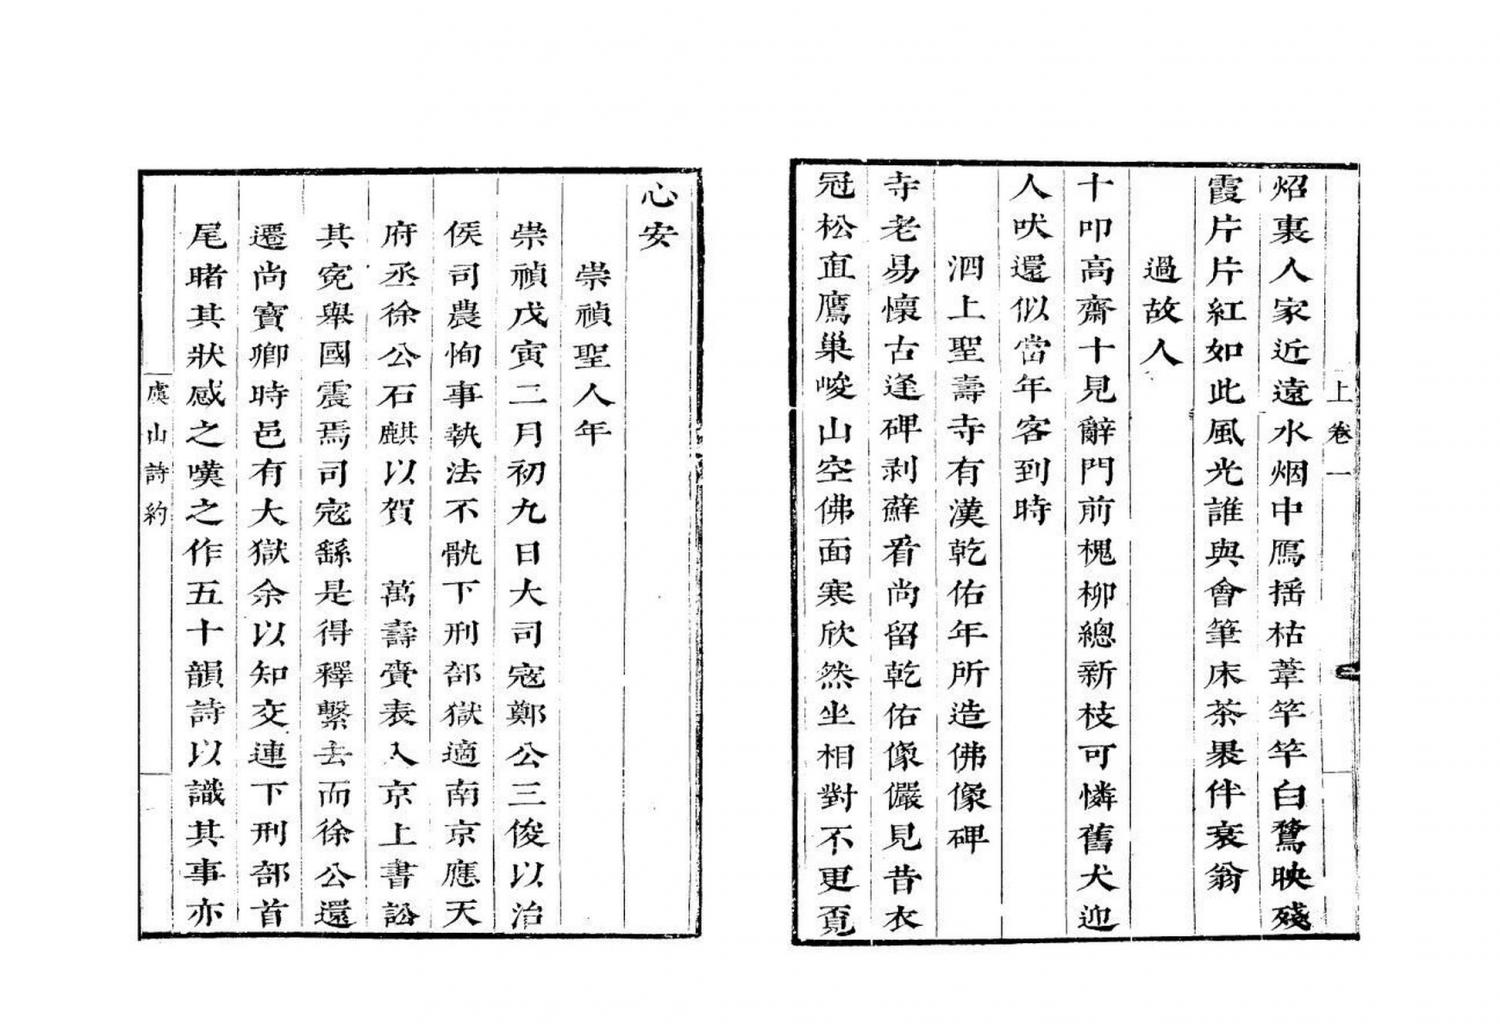 上卷一
炤裏人家近遠水烟中鴈揺枯葦竿竿白鷺映殘
霞片片紅如此風光誰與會筆床茶㫮伴衰翁
過故人
十叩高齋十見辭門前槐柳總新枝可憐舊犬迎
人吠還似當年客到時
泗上聖壽寺有漢乾佑年所造佛像碑
寺老易懷古逢碑剥蘚看尚留乾佑像儼見昔衣
冠松直鷹巢峻山空佛面寒欣然坐相對不更覔
心安
崇禎聖人年
崇禎戊寅二月初九日大司寇鄭公三俊以治
侯司農恂事執法不骩下刑部獄適南京應天
府丞徐公石麒以賀　萬壽賫表入京上書訟
其寃舉國震焉司寇繇是得釋繫去而徐公還
遷尚寶卿時邑有大獄余以知交連下刑部首
尾睹其狀感之嘆之作五十韻詩以識其事亦
虞山詩約